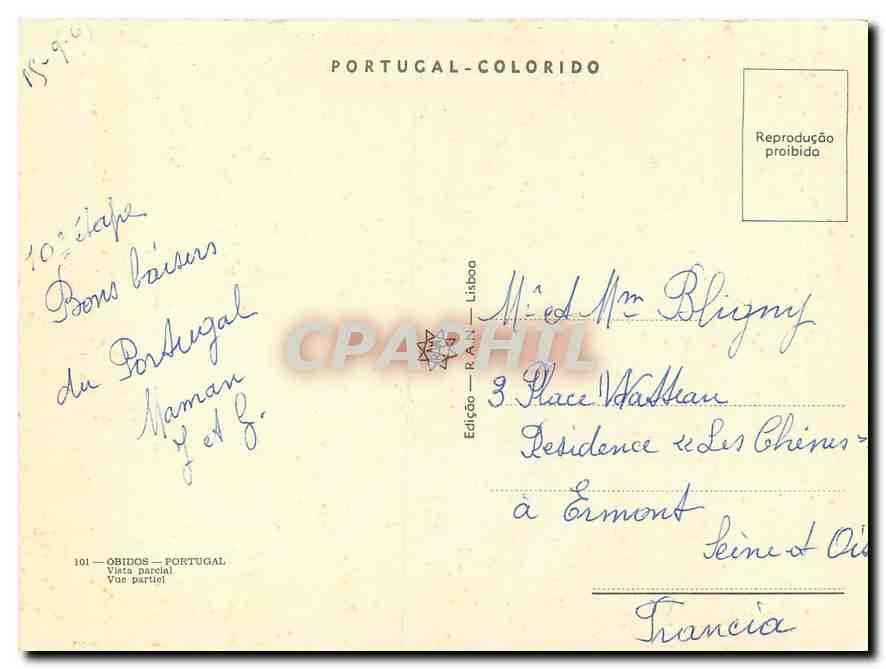 PORTUGAL-COLORIDO
Reprodução
proibida
10e étape
Bons baisers
du Portugal
Maman
J et G.
101 — ÓBIDOS — PORTUGAL
Vista parcial
Vue partiel
Edição — R A N — Lisboa
CPAPHIL
Mr et Mm Bligny
3 Place Watteau
Residence "Les Chênes"
à Ermont
Seine et Ois
Francia